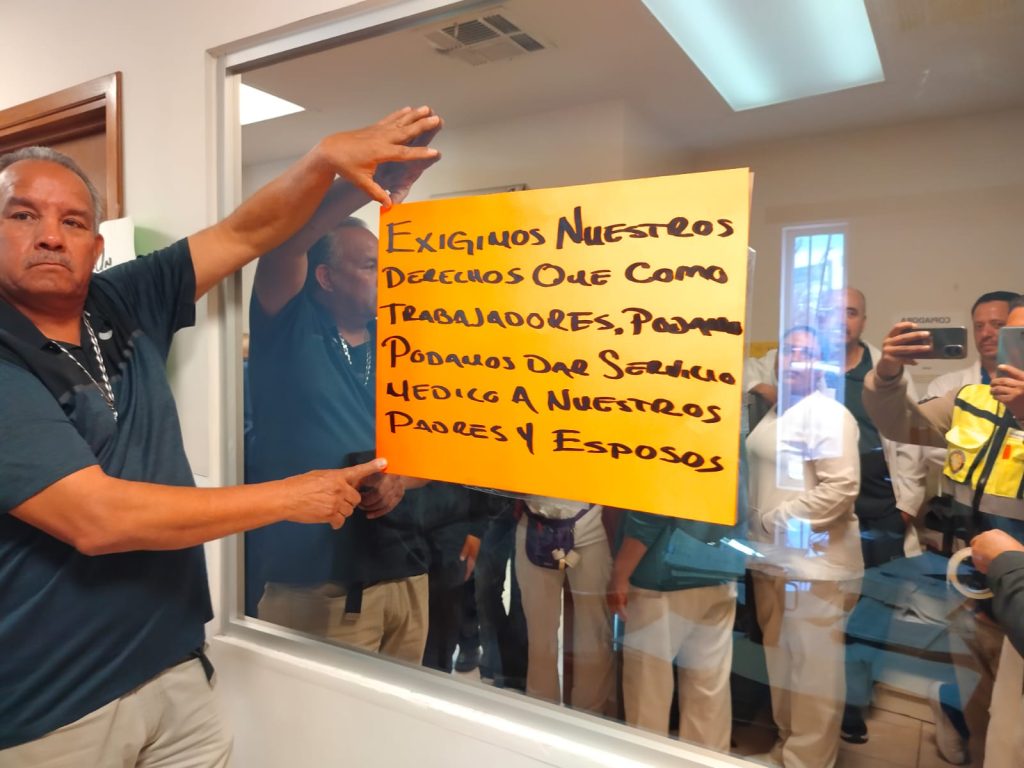 EXIGIMOS NUESTROS
DERECHOS QUE COMO
TRABAJADORES, PODAMOS
PODAMOS DAR SERVICIO
MEDICO A NUESTROS
PADRES Y ESPOSOS
COPIADORA